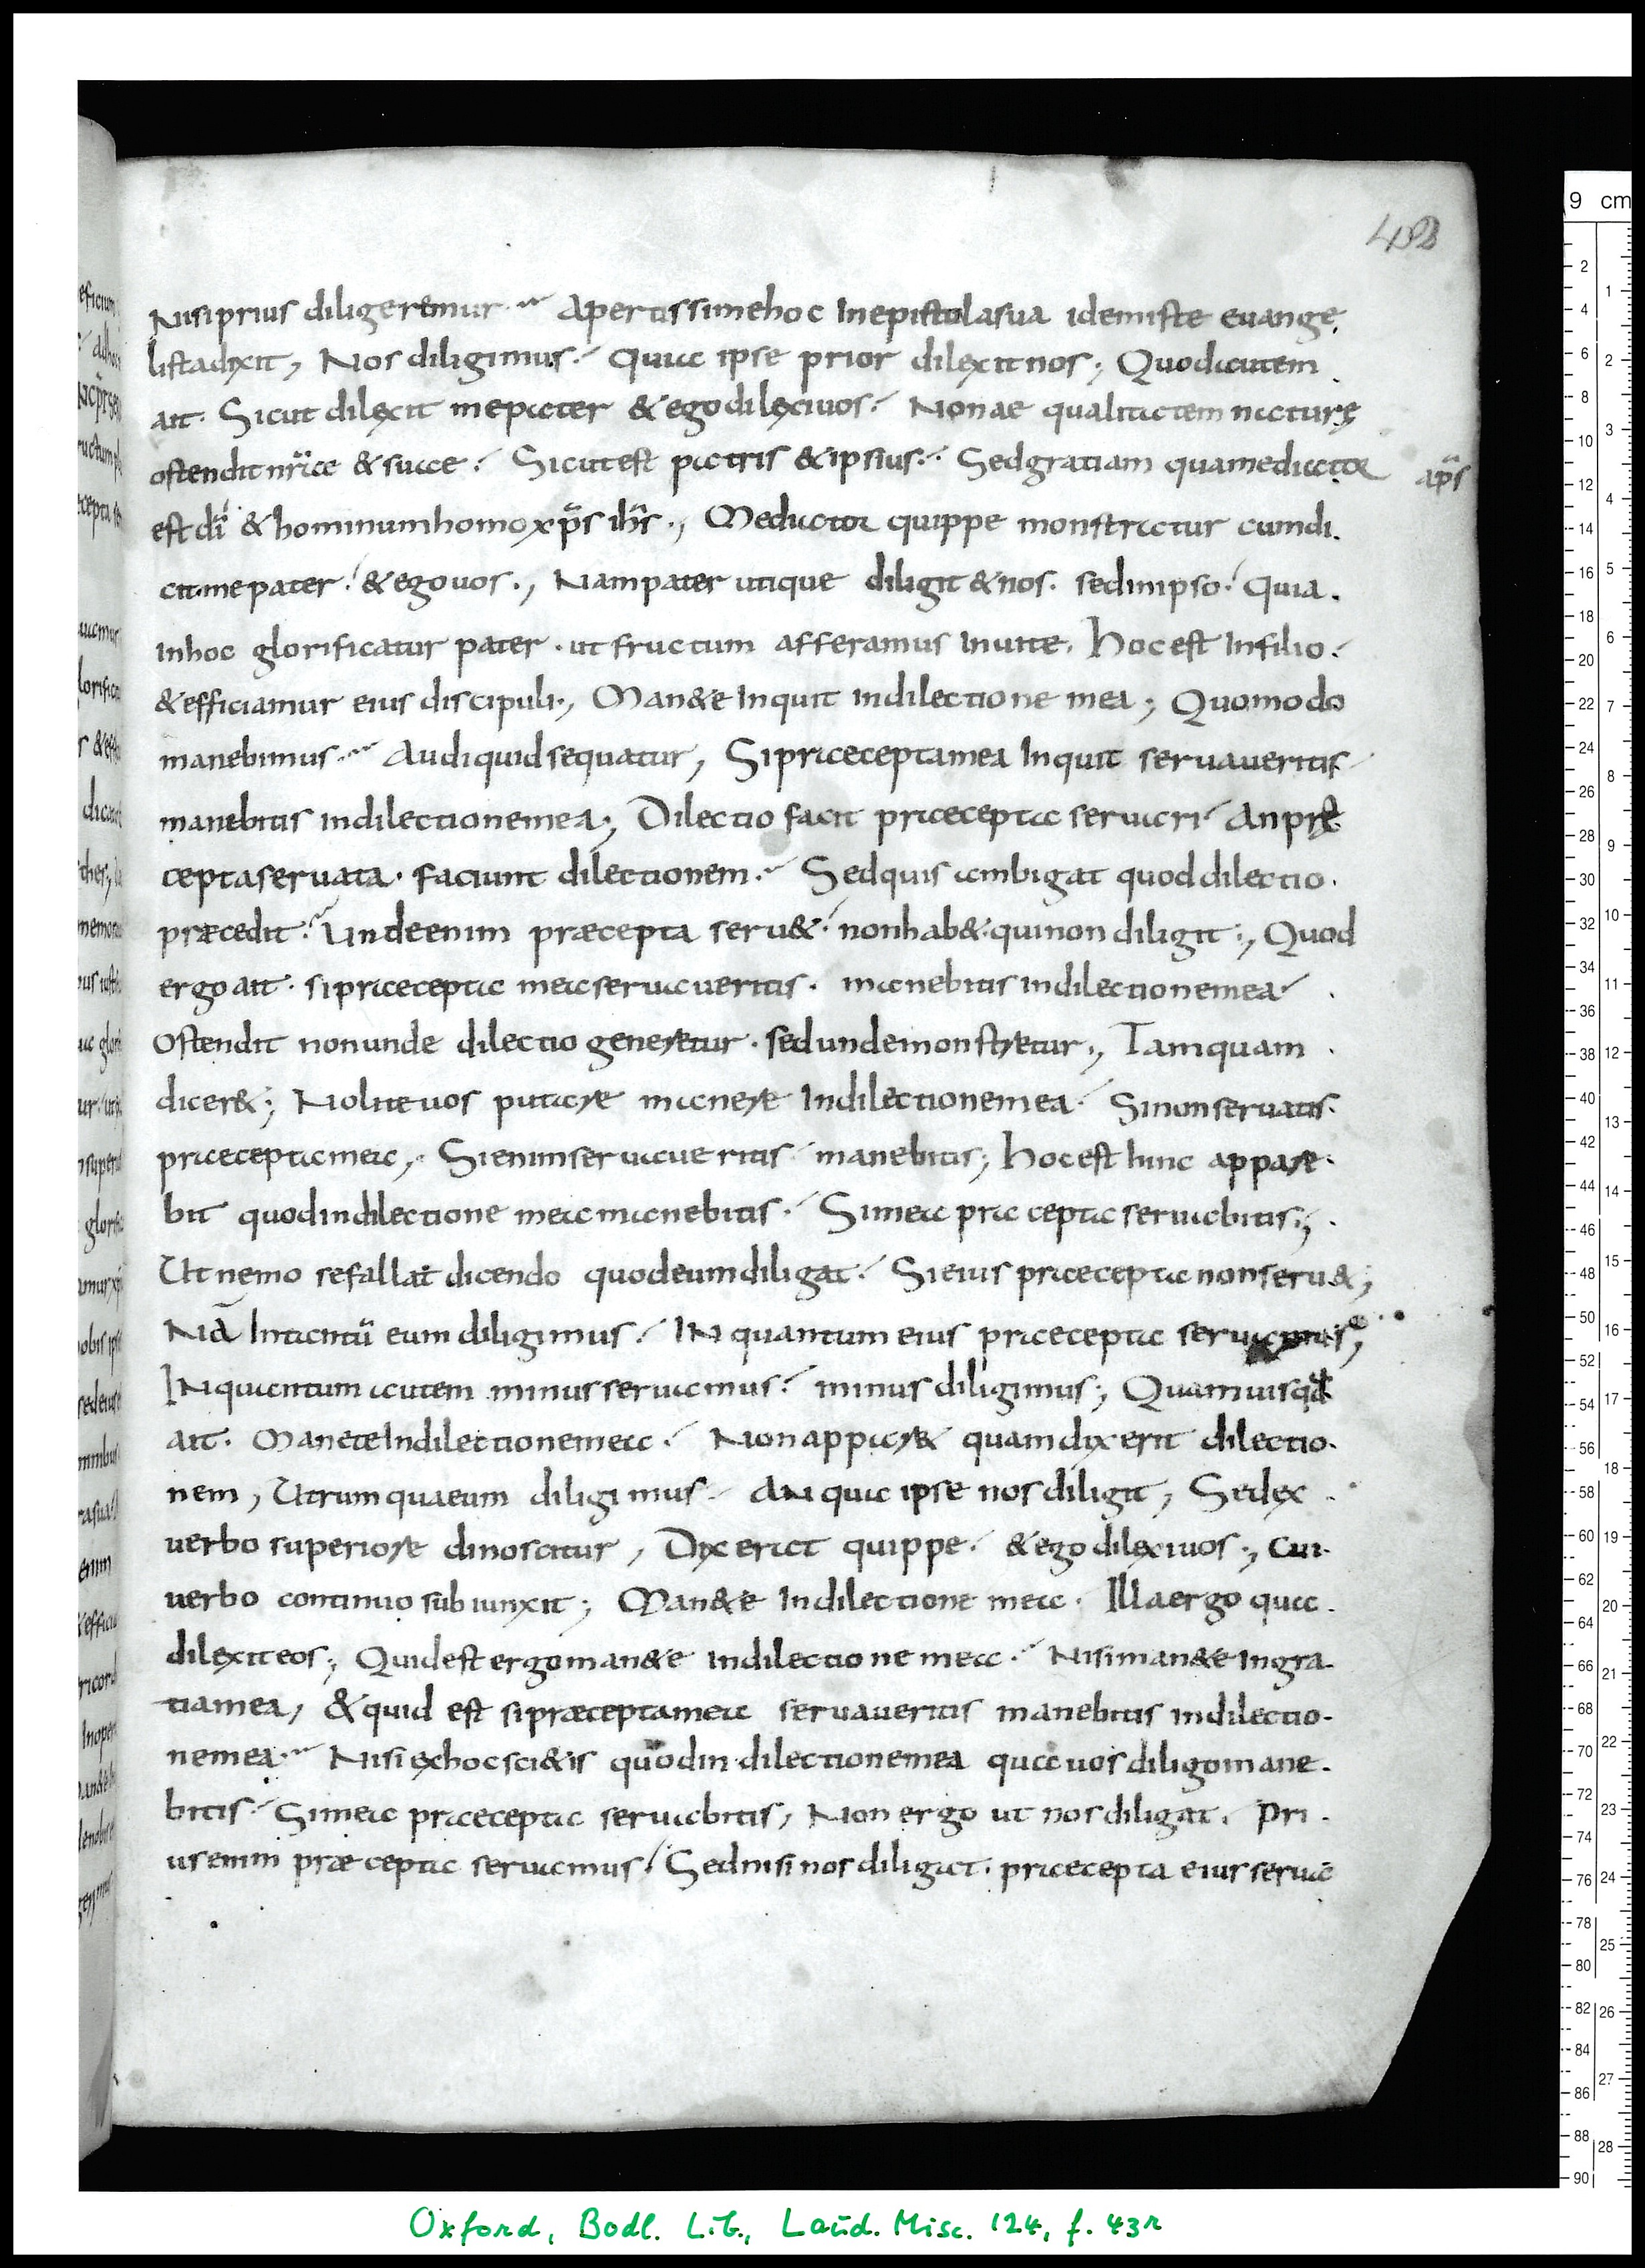 Nisi prius diligeremur Apertissime hoc In epistola sua idem iste euange
lista dixit, Nos diligimus. quia ipse prior dilexit nos; Quod autem
ait. Sicut dilexit me pater & ego dilexi uos. Non aequalitatem naturę
ostendit nr̄ae & suae. Sicut est patris & ipsius. Sed gratiam qua mediator
ap̄s
est dī & hominum homo xp̄s ih̄s., Mediator quippe monstratur cum di.
cit me pater. & ego uos., Nam pater utique diligit & nos. sed in ipso. Quia.
In hoc glorificatur pater. ut fructum afferamus In uite. hoc est In filio.
& efficiamur eius discipuli., Man&e Inquit In dilectione mea; Quomodo
manebimus. Audi quid sequatur, Si praecepta mea Inquit seruaueritis
manebitis in dilectione mea; Dilectio facit praecepta seruari An prę
cepta seruata. faciunt dilectionem. Sed quis ambigat quod dilectio.
praecedit. Unde enim praecepta seru&. non hab&. qui non diligit., Quod
ergo ait. si praecepta mea seruaueritis. manebitis in dilectione mea
Ostendit non unde dilectio generetur. sed unde monstretur., Tamquam
dicer&; Nolite uos putare manere In dilectione mea. Si non seruatis.
praecepta mea,. Si enim seruaueritis manebitis; hoc est hinc appare.
bit quod in dilectione mea manebitis. Si mea praecepta seruabitis;.
Ut nemo se fallat dicendo quod eum diligat. Si eius praecepta non seru&;
Nā In tantū eum diligimus. IN quantum eius praecepta
IN quantum autem minus seruamus. minus diligimus; Quamuis qđ
ait. Manete In dilectione mea. Non appar& quam dixerit dilectio.
nem, Utrum qua eum diligimus. AN qua ipse nos diligit, Sed ex
uerbo superiore dinoscitur, Dixerat quippe. & ego dilexi uos., Cui.
uerbo continuo subiunxit; Man&e In dilectione mea. Illa ergo qua.
dilexit eos; Quid est ergo man&e in dilectione mea. Nisi man&e In gra.
tia mea, & quid est si praecepta mea seruaueritis manebitis in dilectio.
ne mea. Nisi ex hoc sci&is quod in dilectione mea qua uos diligo mane.
bitis. Si mea praecepta seruabitis, Non ergo ut nos diligat. Pri.
us enim praecepta seruamus. Sed nisi nos diligat. praecepta eius serua
Oxford, Bodl. Lib., Laud. Misc. 124, f. 43r